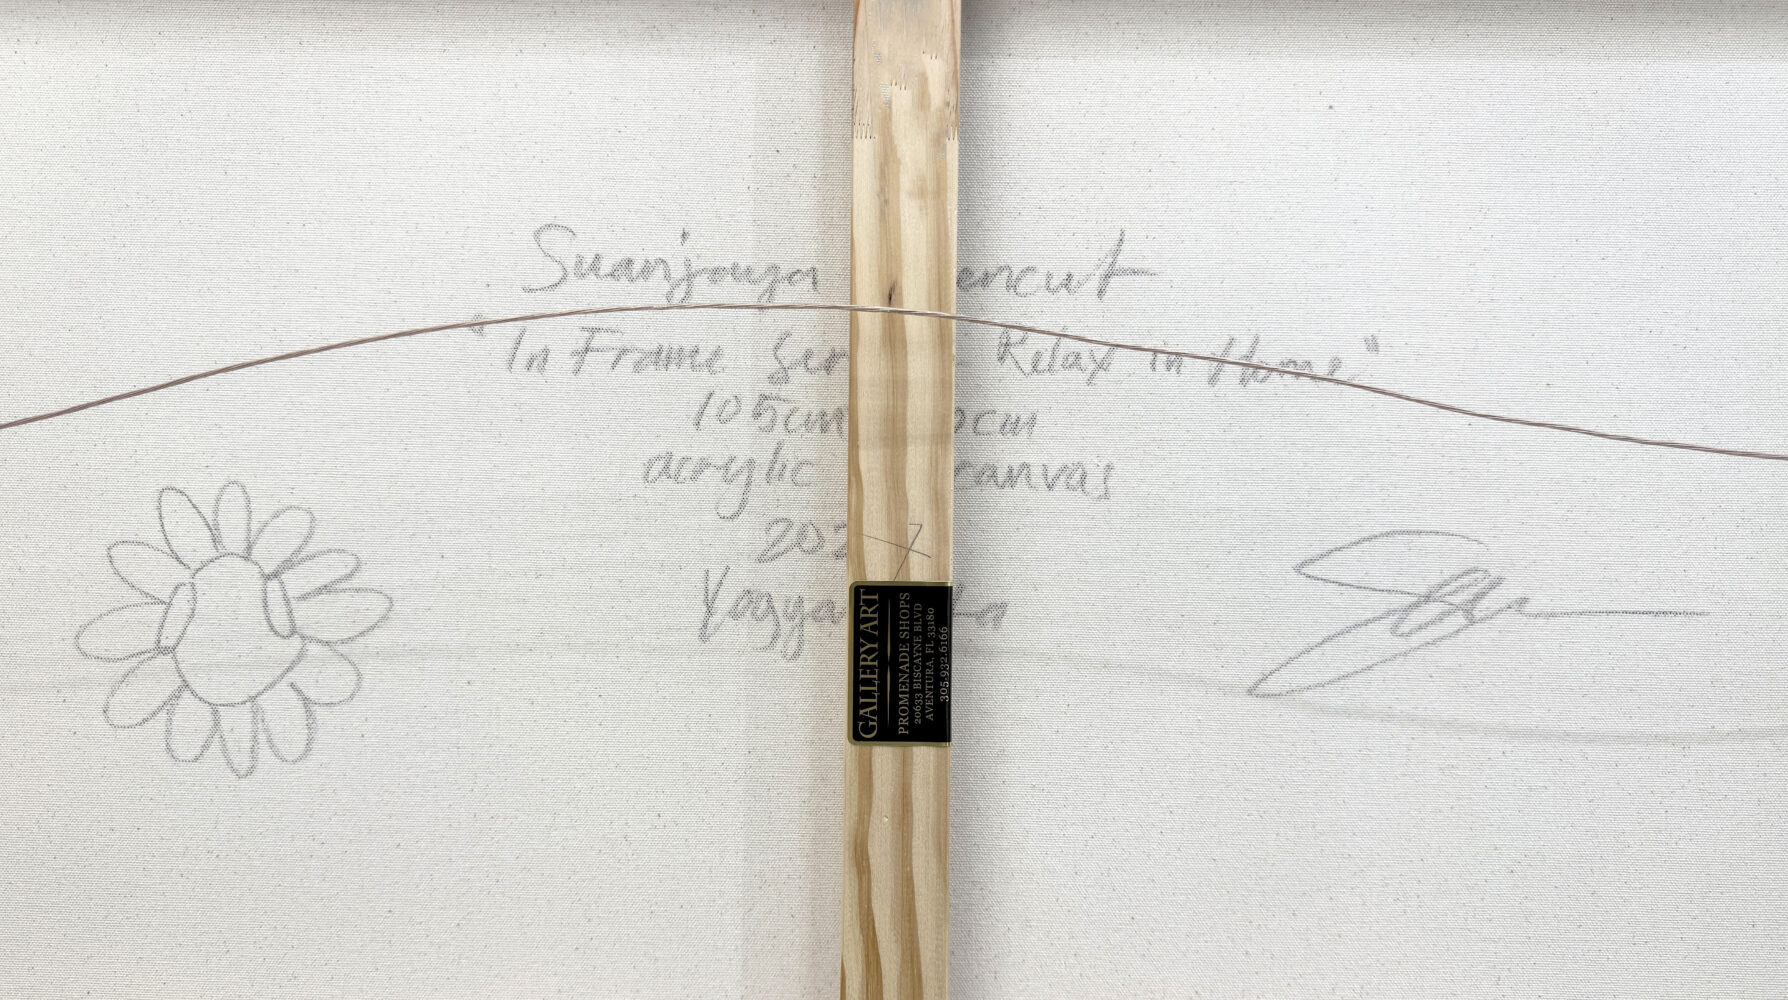 Suanjaya encut
"In Frame Ser - Relax in Home"
105cm 0cm
acrylic canvas
202
Yogya ta
GALLERY ART
PROMENADE SHOPS
20633 BISCAYNE BLVD
AVENTURA, FL 33180
305.932.6166